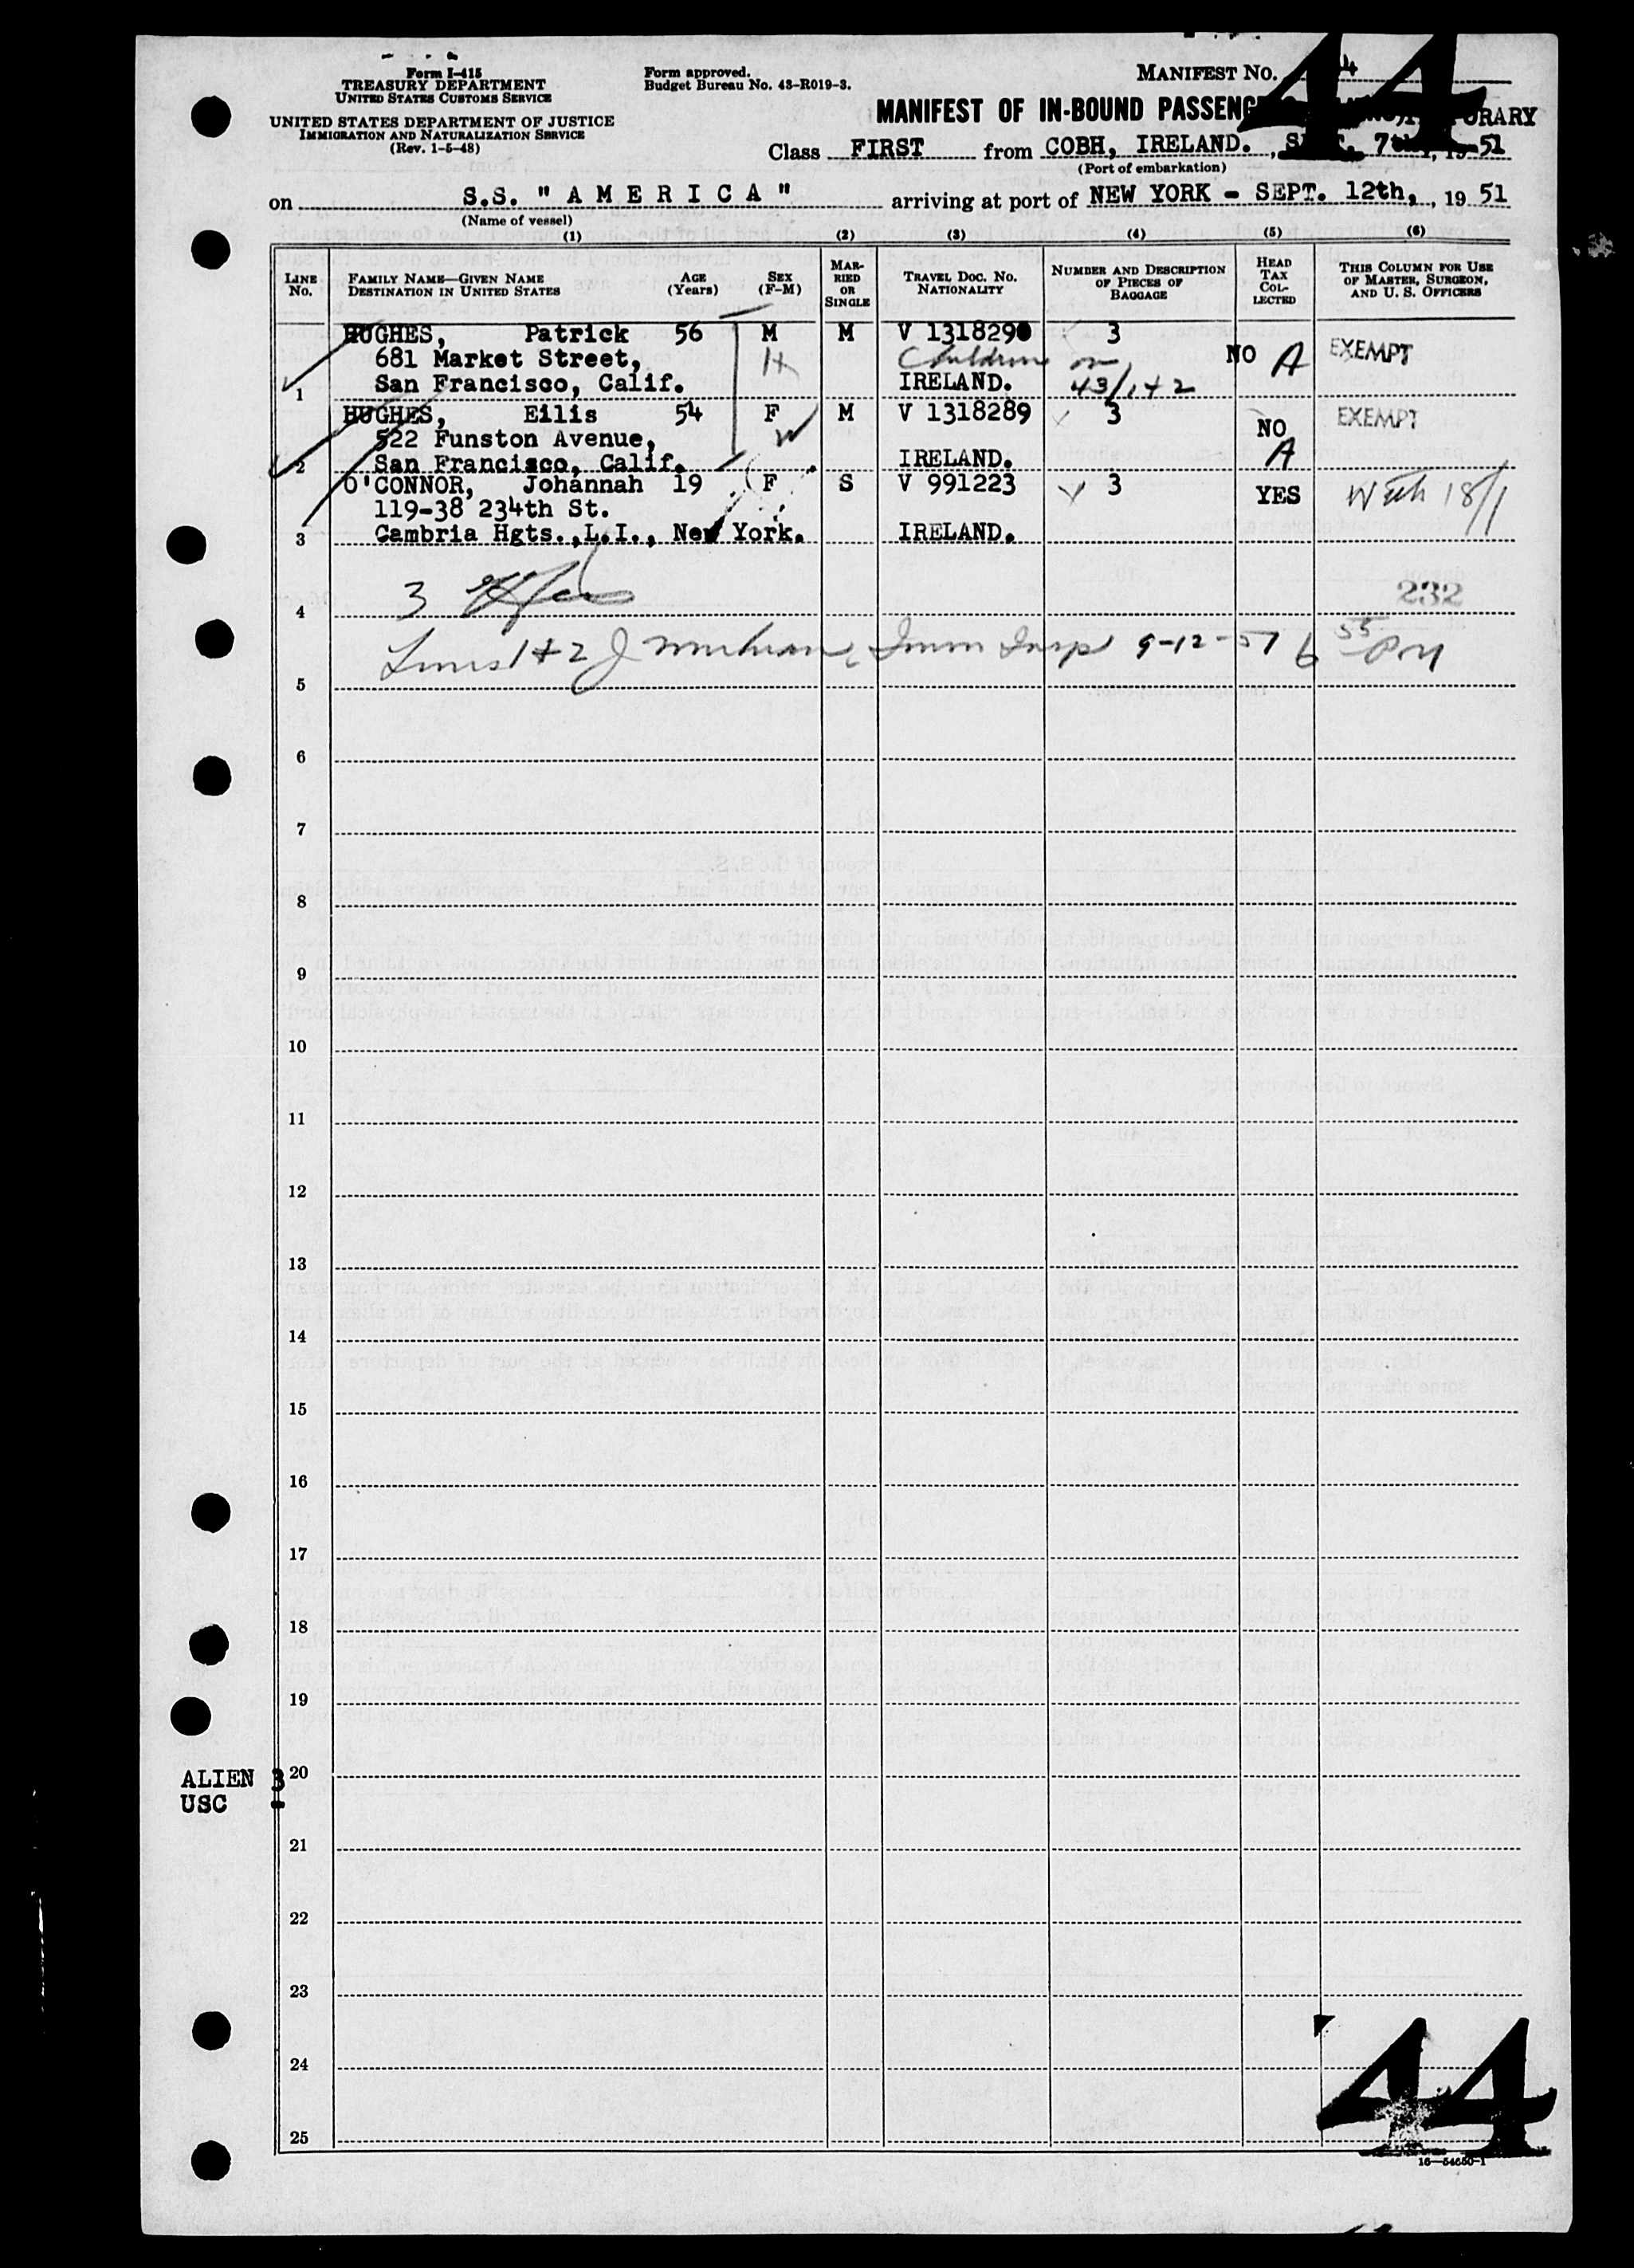 Form I-415
TREASURY DEPARTMENT
UNITED STATES CUSTOMS SERVICE
UNITED STATES DEPARTMENT OF JUSTICE
IMMIGRATION AND NATURALIZATION SERVICE
(Rev. 1-5-48)
Form approved.
Budget Bureau No. 43-R019-3.
MANIFEST NO. 44
MANIFEST OF IN-BOUND PASSENG
Class FIRST from COBH, IRELAND., SEPT. 7th, 1951
(Port of embarkation)
on S.S. "AMERICA" arriving at port of NEW YORK - SEPT. 12th, 1951
(Name of vessel)
(1) (2) (3) (4) (5) (6)
LINE NO.
FAMILY NAME—GIVEN NAME
DESTINATION IN UNITED STATES
AGE (Years)
SEX (F-M)
MARRIED OR SINGLE
TRAVEL DOC. NO.
NATIONALITY
NUMBER AND DESCRIPTION OF PIECES OF BAGGAGE
HEAD TAX COLLECTED
THIS COLUMN FOR USE OF MASTER, SURGEON, AND U. S. OFFICERS
HUGHES, Patrick 56 M M V 1318290 3
681 Market Street, H Children on NO A EXEMPT
1 San Francisco, Calif. IRELAND. 43/1+2
HUGHES, Eilis 54 F M V 1318289 3 EXEMPT
522 Funston Avenue, W NO
2 San Francisco, Calif. IRELAND. A
O'CONNOR, Johannah 19 F S V 991223 3 YES With 18/1
119-38 234th St.
3 Cambria Hgts., L.I., New York. IRELAND.
3
4 232
Lines 1+2 J Imm Insp 9-12-51 6 55 PM
5
6
7
8
9
10
11
12
13
14
15
16
17
18
19
ALIEN 3 20
USC -
21
22
23
24
44
25
16—54650-1